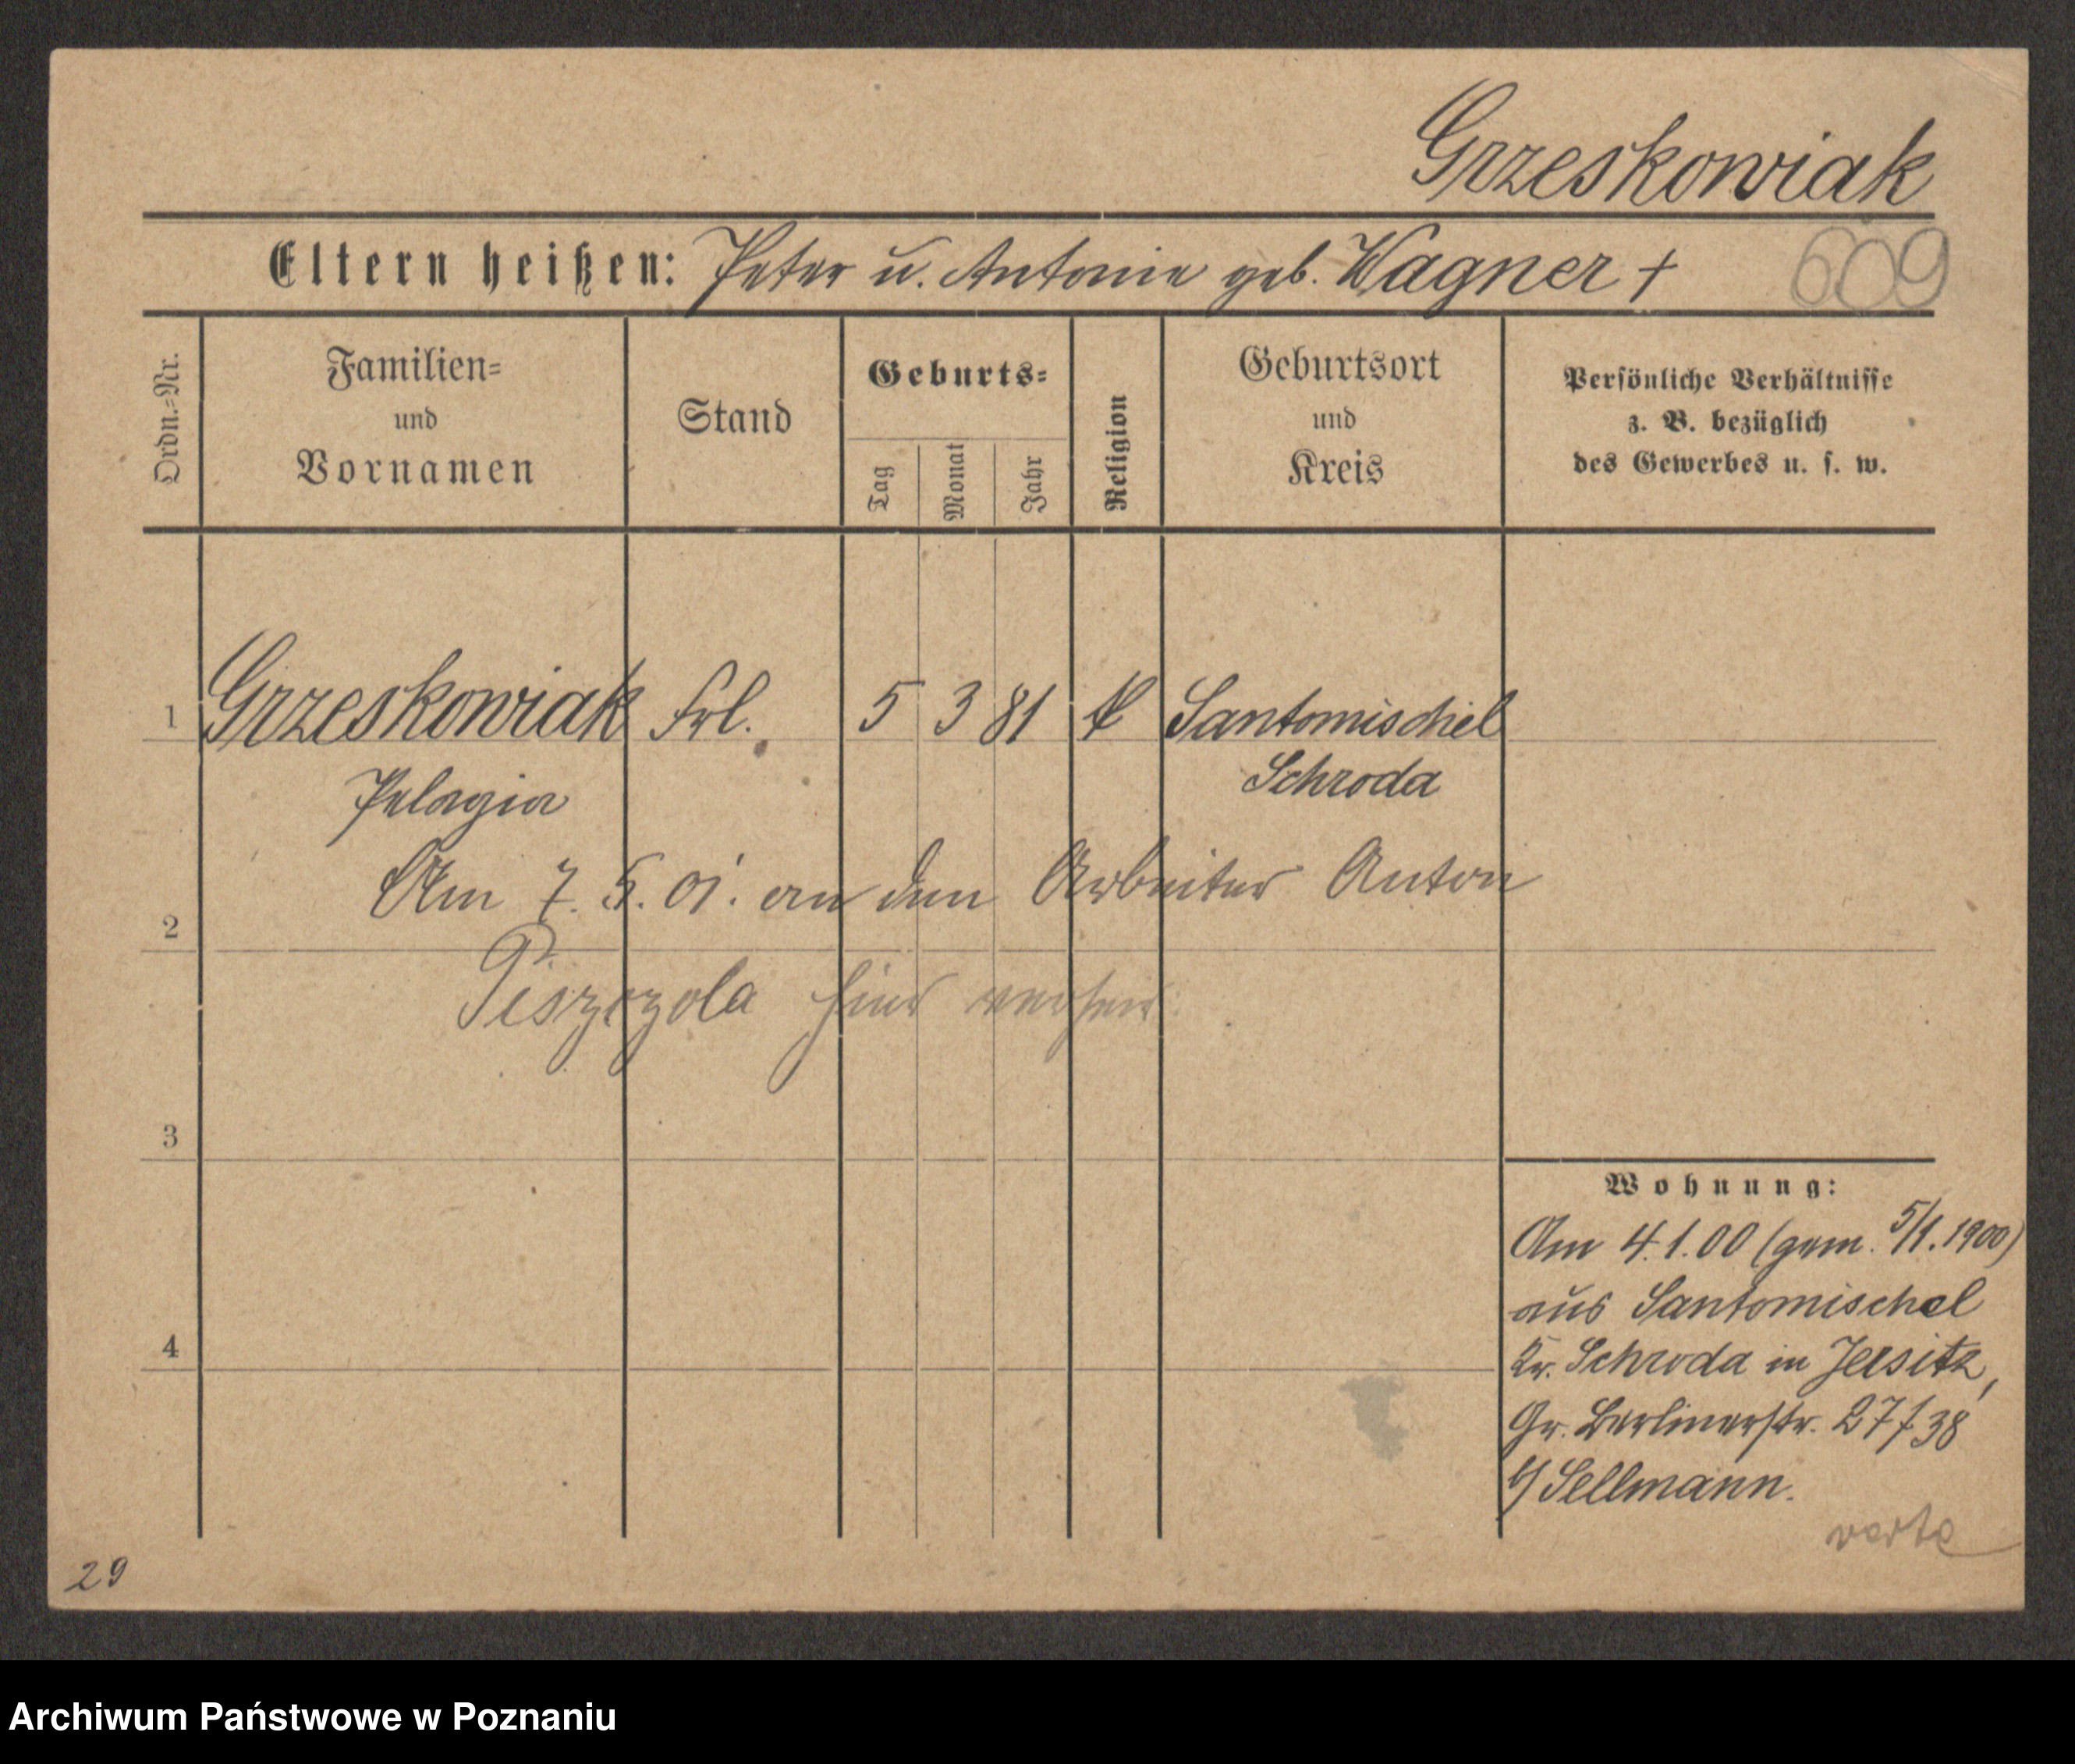 Grzeskowiak
Eltern heißen: Peter u. Antonie geb. Wagner +
609
Ordn.=Nr.
Familien=
und
Vornamen
Stand
Geburts=
Tag
Monat
Jahr
Religion
Geburtsort
und
Kreis
Persönliche Verhältnisse
z. B. bezüglich
des Gewerbes u. s. w.
1 Grzeskowiak Frl. 5 3 81 k Santomischel
Pelagia Schroda
Am 7. 5. 01. an den Arbeiter Anton
2
Piszczola hier verh.
3
Wohnung:
Am 4.1.00 (gem. 5/1.1900)
aus Santomischel
4
Kr. Schroda in Jersitz,
Gr. Berlinerstr. 27/38
b/ Sellmann.
verte
29
Archiwum Państwowe w Poznaniu